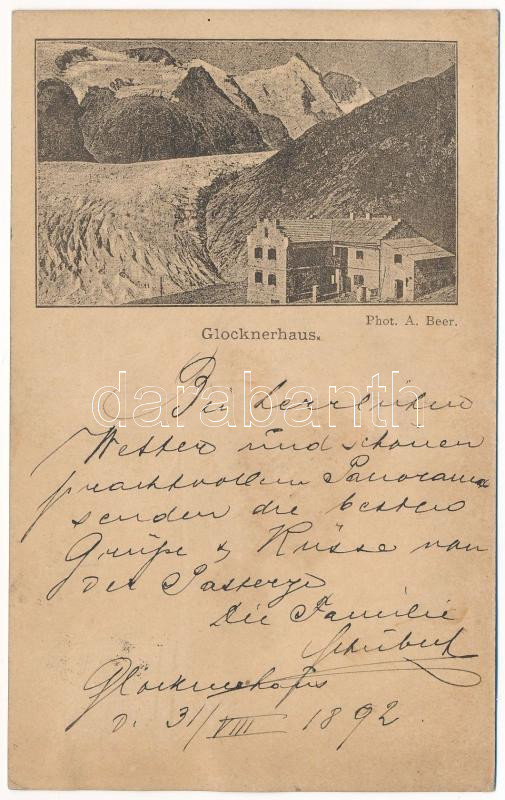 Glocknerhaus.
Phot. A. Beer.
darabanth
Bei herrlichem
Wetter und schönen
prachtvollem Panorama
senden die besten
Grüße & Küsse von
der Pasterze
Die Familie
Schubert
Glocknerhaus
d. 31/VIII 1892.